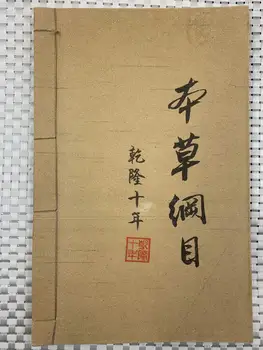 本草綱目
乾隆十年